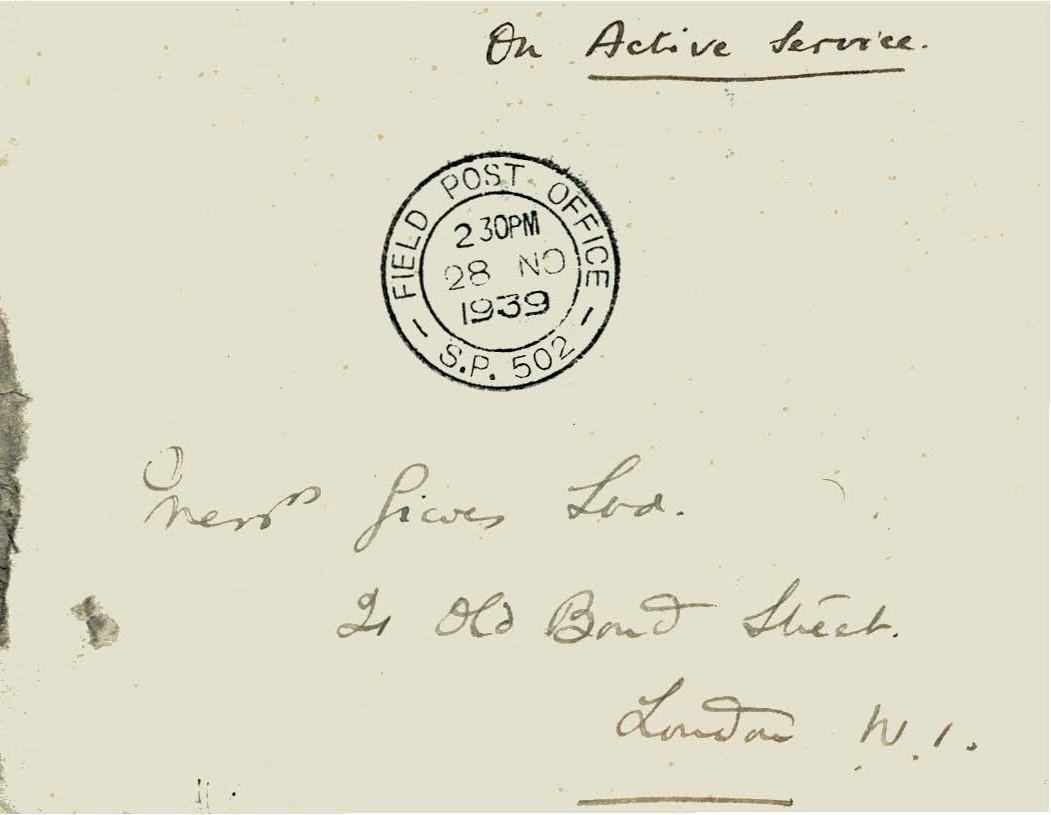 On Active Service.
FIELD POST OFFICE
2 30PM
28 NO
1939
– S.P. 502 –
Messrs Gieves Ltd.
21 Old Bond Street.
London W.1.